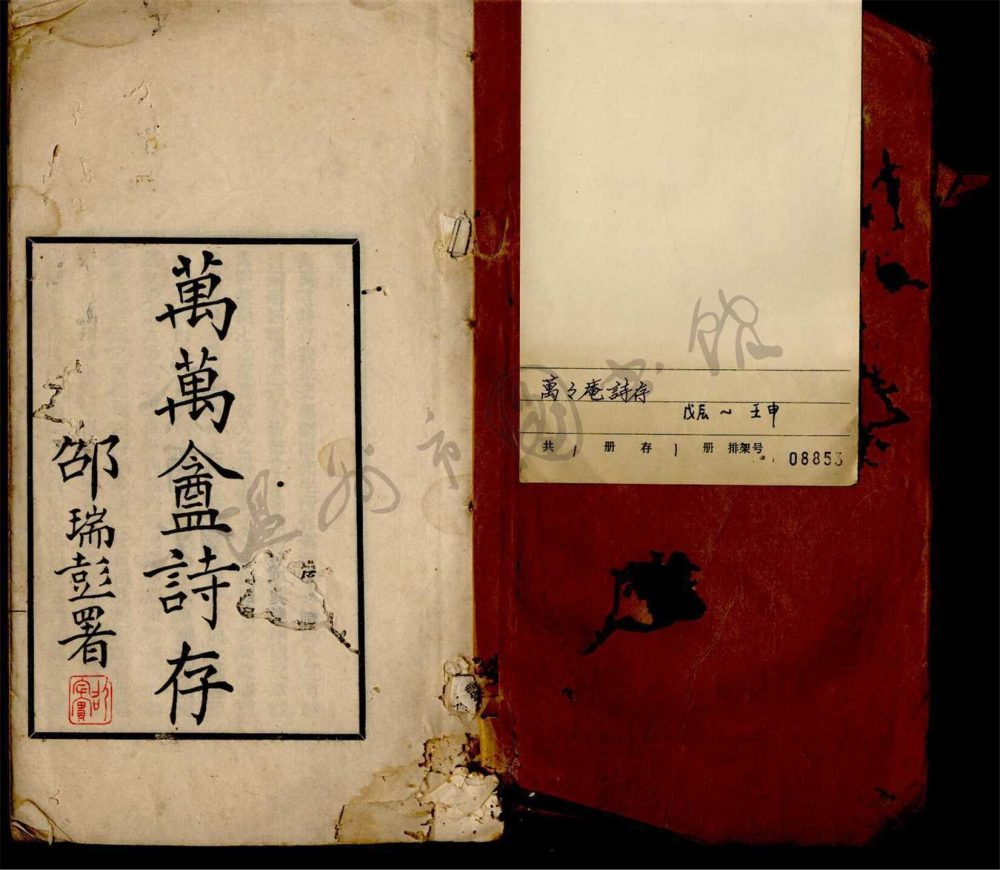 萬萬盦詩存
邵瑞彭署
萬々庵詩存
戊辰～壬申
共 1 册 存 1 册 排架号 08853
温州市圖书馆